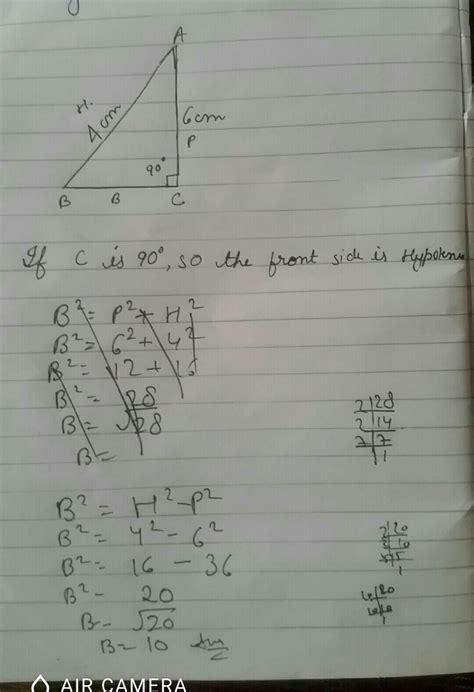 A
H.
4cm
6cm
P
90°
B B C
If C is 90°, so the front side is Hypotenus
B² = P² + H²
B² = 6² + 4²
B² = 12 + 15
B² = 28
B = √28
B =
2 28
2 14
7 7
1
B² = H² - P²
B² = 4² - 6²
B² = 16 - 36
B² - 20
B = √20
B = 10 Ans
2 20
2 10
5 5
1
AIR CAMERA